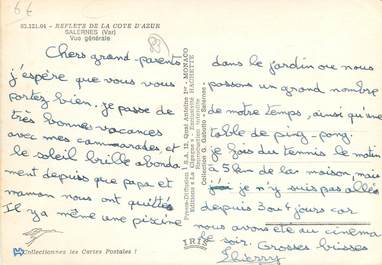 6€
83.121.04 - REFLETS DE LA COTE D'AZUR
SALERNES (Var)
Vue générale
83
Chers grand-parents
j'espère que vous vous
portez bien. je passe de
très bonnes vacances
avec mes cammarades, et
le soleil brille abonda-
ment depuis que papa et
maman nous ont quittés
Il y a même une piscine
dans le jardin ou nous
passons un grand nombre
de notre temps, ainsi que une
table de ping-pong.
je fais du tennis le matin
a 3 km de la maison, mais
je n'y suis pas allés
depuis 3 ou 4 jours car
nous avons été au cinéma
le soir. Grosses bisses
Thierry
Presse-Diffusion S.R.A. 12, Quai Antoine 1er - MONACO
Editions « La Cigogne » - Exclusivité HACHETTE
Reproduction interdite
Collection G. Gabotto - Salernes
IRIS
Collectionnez les Cartes Postales !